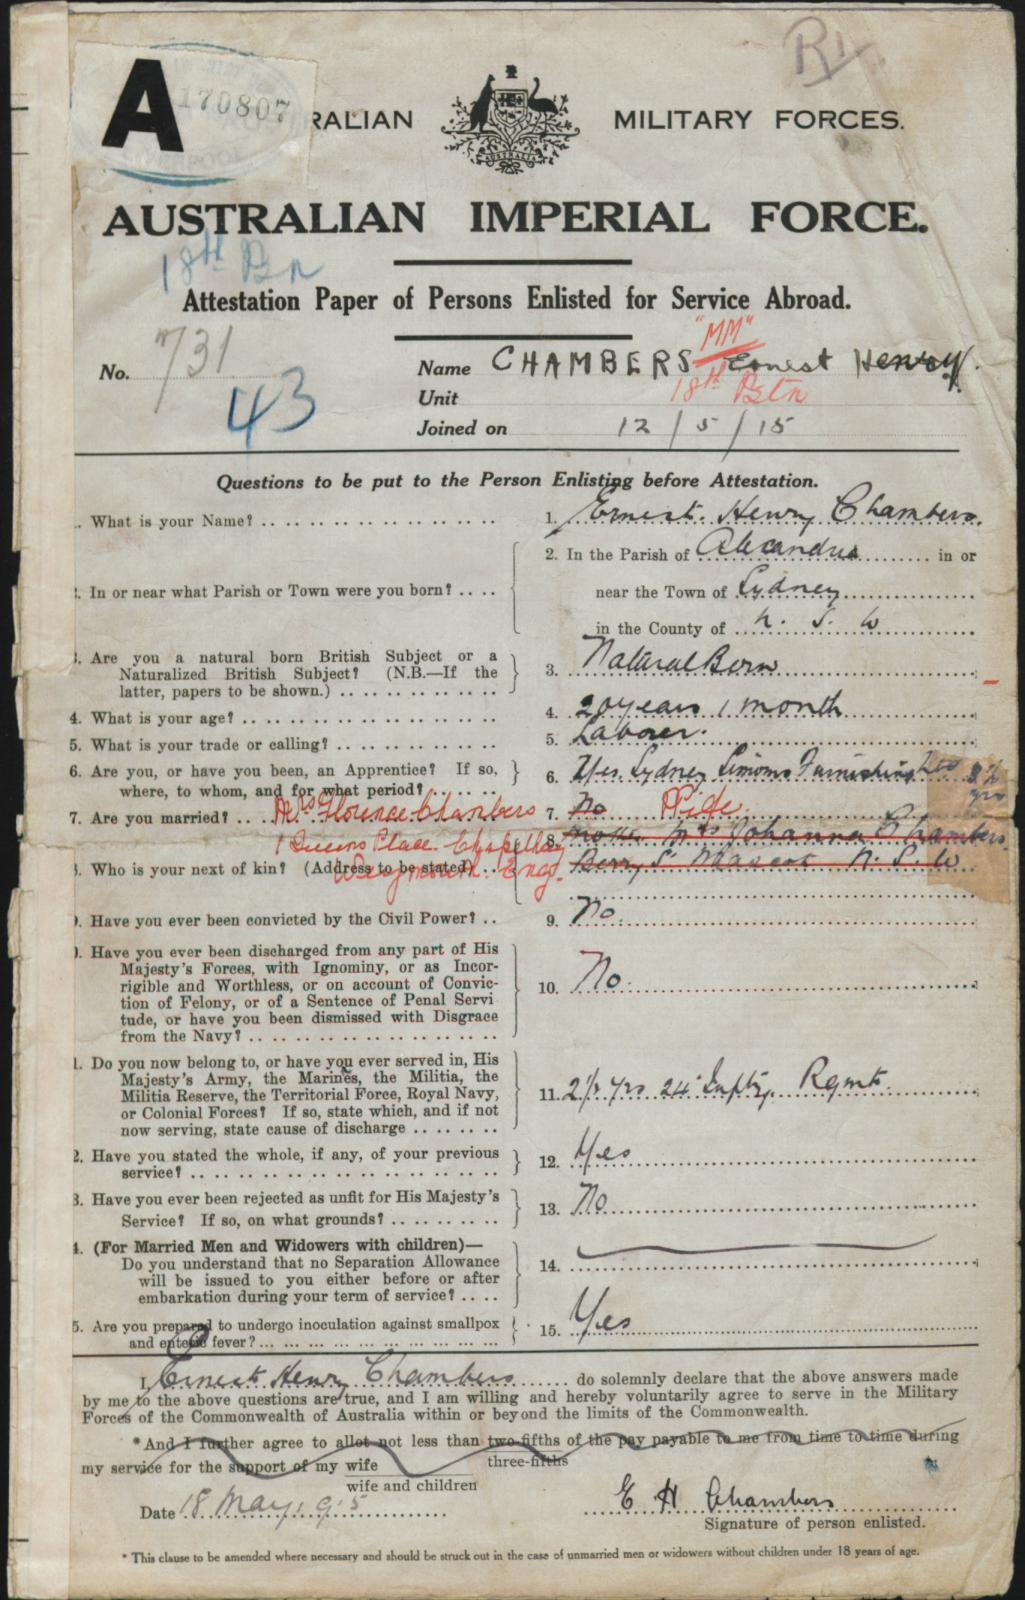 R1
A 170807
RALIAN MILITARY FORCES.
AUSTRALIA
AUSTRALIAN IMPERIAL FORCE.
18th Bn
Attestation Paper of Persons Enlisted for Service Abroad.
"MM"
No. 731 Name CHAMBERS Ernest Henry.
43 Unit 18th Btn
Joined on 12/5/15
Questions to be put to the Person Enlisting before Attestation.
. What is your Name? 1. Ernest Henry Chambers.
2. In the Parish of Alexandria in or
. In or near what Parish or Town were you born? near the Town of Sydney
in the County of N. S. W
. Are you a natural born British Subject or a
Naturalized British Subject? (N.B.—If the 3. Natural Born
latter, papers to be shown.)
4. What is your age? 4. 20 years 1 month
5. What is your trade or calling? 5. Laborer.
6. Are you, or have you been, an Apprentice? If so, 6. Yes Sydney Simons Furnishing
where, to whom, and for what period?
7. Are you married? Mrs Florence Chambers 7. No Wife.
1 Queens Place 8. Mother Mrs Johanna Chambers
. Who is your next of kin? (Address to be stated) Weymouth Eng. St Mascot N. S. W
. Have you ever been convicted by the Civil Power? 9. No.
. Have you ever been discharged from any part of His
Majesty's Forces, with Ignominy, or as Incor-
rigible and Worthless, or on account of Convic-
tion of Felony, or of a Sentence of Penal Servi 10. No.
tude, or have you been dismissed with Disgrace
from the Navy?
1. Do you now belong to, or have you ever served in, His
Majesty's Army, the Marines, the Militia, the
Militia Reserve, the Territorial Force, Royal Navy, 11. 2½ yrs 24th Inftry. Rgmt.
or Colonial Forces? If so, state which, and if not
now serving, state cause of discharge
2. Have you stated the whole, if any, of your previous 12. Yes
service?
3. Have you ever been rejected as unfit for His Majesty's 13. No
Service? If so, on what grounds?
4. (For Married Men and Widowers with children)—
Do you understand that no Separation Allowance 14.
will be issued to you either before or after
embarkation during your term of service?
5. Are you prepared to undergo inoculation against smallpox 15. Yes
and enteric fever?
I, Ernest Henry Chambers do solemnly declare that the above answers made
by me to the above questions are true, and I am willing and hereby voluntarily agree to serve in the Military
Forces of the Commonwealth of Australia within or beyond the limits of the Commonwealth.
*And I further agree to allot not less than two-fifths of the pay payable to me from time to time during
three-fifths
my service for the support of my wife
wife and children
Date 18 May, 915 E H Chambers
Signature of person enlisted.
* This clause to be amended where necessary and should be struck out in the case of unmarried men or widowers without children under 18 years of age.